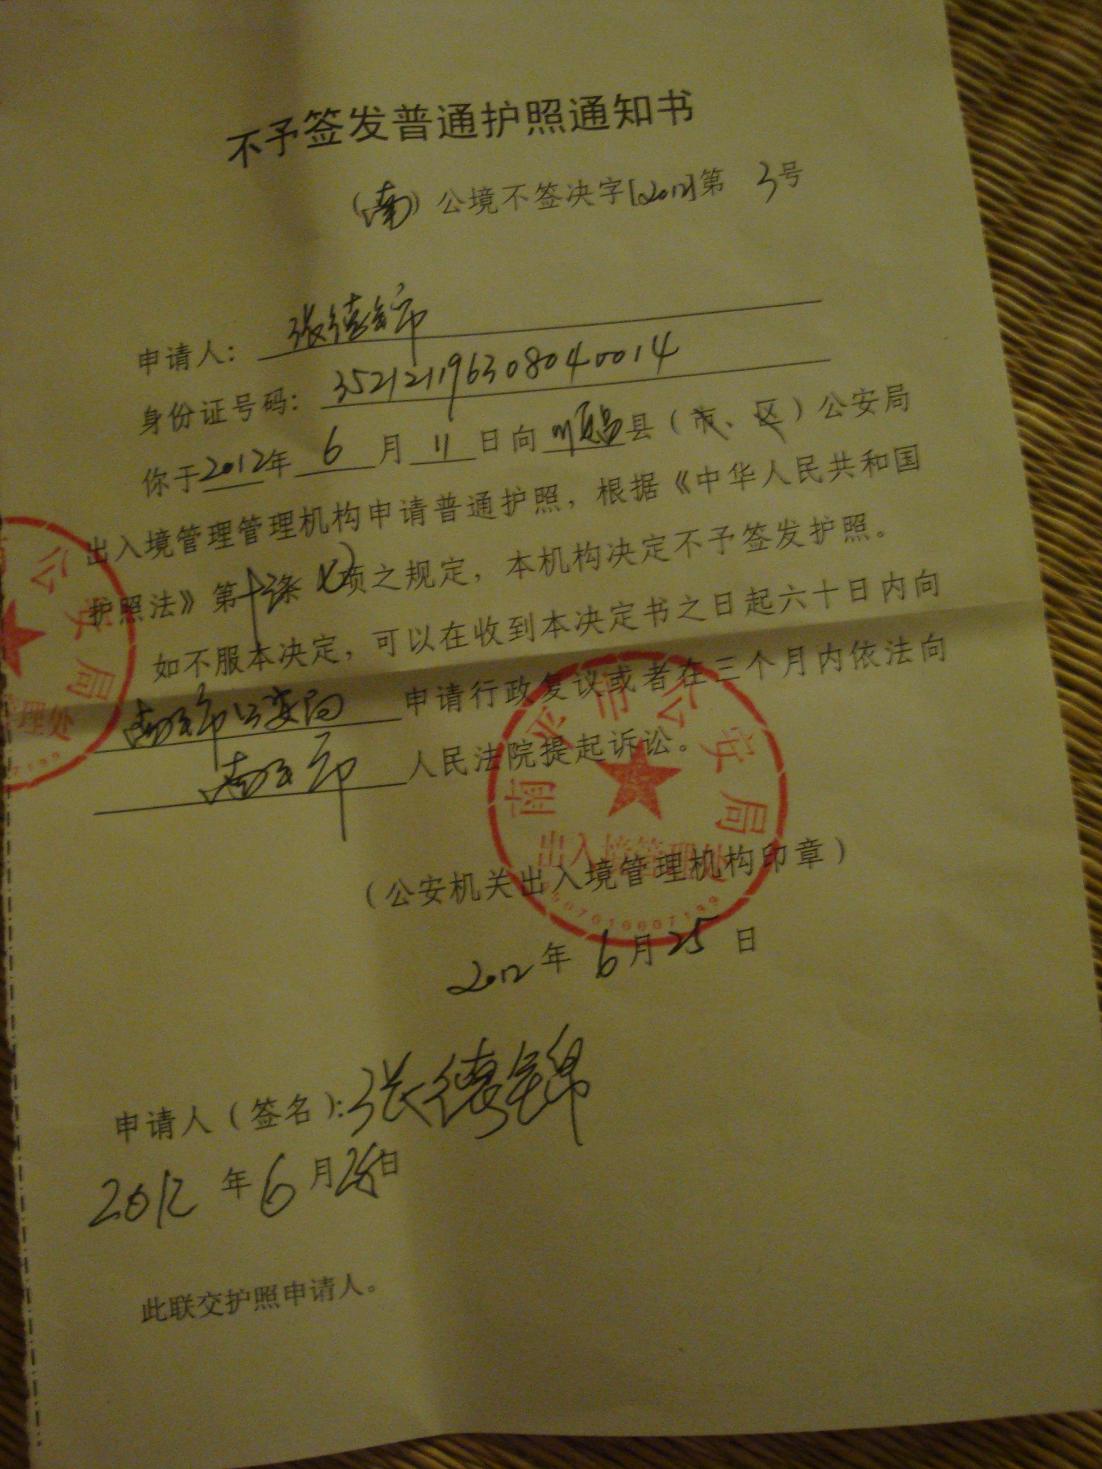 不予签发普通护照通知书
(南)公境不签决字[2012]第 3号
申请人: 张德锦
身份证号码: 352121196308040014
你于2012年 6 月 11 日向 顺昌 县(市、区)公安局
出入境管理管理机构申请普通护照,根据《中华人民共和国
护照法》第十三条(七)项之规定,本机构决定不予签发护照。
如不服本决定,可以在收到本决定书之日起六十日内向
南平市公安局 申请行政复议或者在三个月内依法向
南平市 人民法院提起诉讼。
南平市公安局
出入境管理处
(公安机关出入境管理机构印章)
2012年 6月25日
申请人(签名):张德锦
2012 年 6 月 日
此联交护照申请人。
公安局
理处